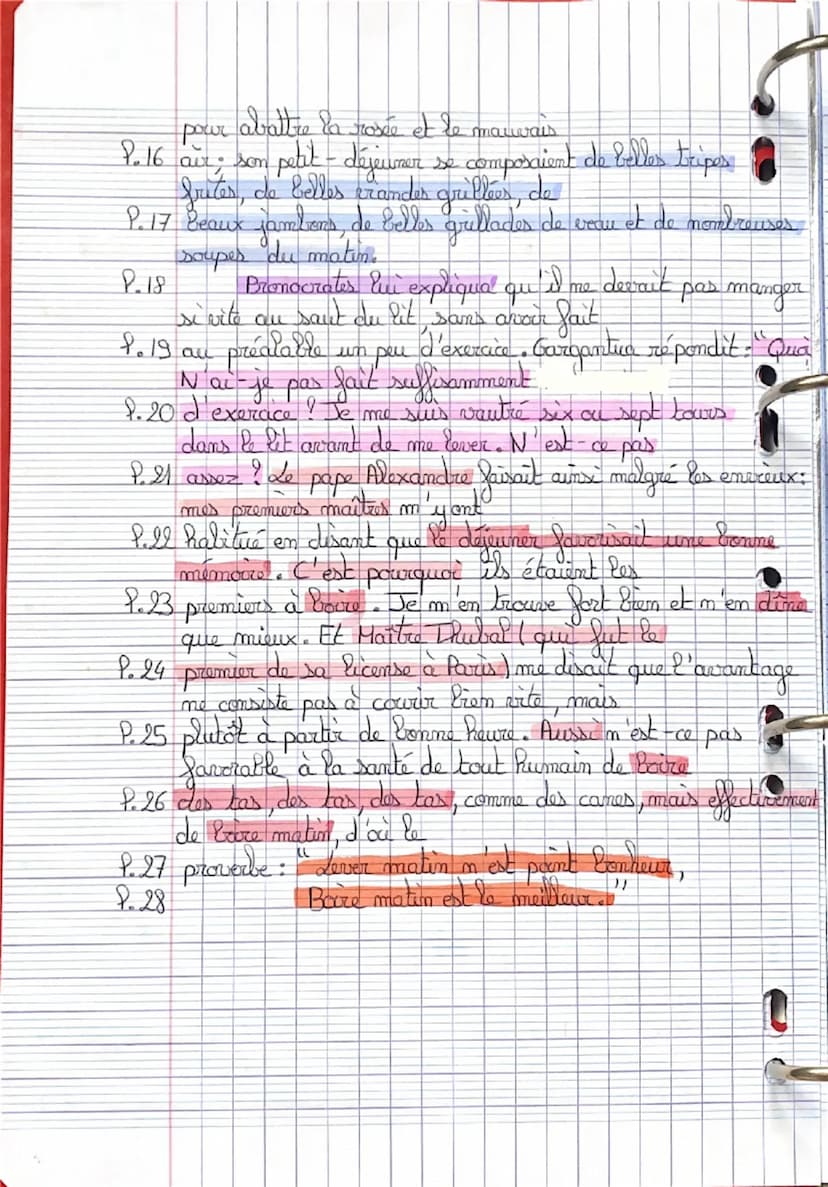 pour abattre la rosée et le mauvais
P.16 air : son petit-déjeuner se composaient de belles tripes
frites, de belles viandes grillées, de
P.17 beaux jambons, de belles grillades de veau et de nombreuses
soupes du matin.
P.18 Bronocrates lui expliqua qu'il ne devrait pas manger
si vite au saut du lit, sans avoir fait
P.19 au préalable un peu d'exercice. Gargantua répondit : "Quoi
N'ai-je pas fait suffisamment
P.20 d'exercice ? Je me suis vautré six ou sept tours
dans le lit avant de me lever. N'est-ce pas
P.21 assez ? Le pape Alexandre faisait ainsi malgré les envieux :
mes premiers maîtres m'y ont
P.22 habitué en disant que le déjeuner favorisait une bonne
mémoire. C'est pourquoi ils étaient les
P.23 premiers à boire. Je m'en trouve fort bien et m'en dîne
que mieux. Et Maître Thubal (qui fut le
P.24 premier de sa license à Paris) me disait que l'avantage
ne consiste pas à courir bien vite, mais
P.25 plutôt à partir de bonne heure. Aussi n'est-ce pas
favorable à la santé de tout humain de boire
P.26 des tas, des tas, des tas, comme des canes, mais effectivement
de boire matin, d'où le
P.27 proverbe : "Lever matin n'est point bonheur,
P.28 Boire matin est le meilleur."